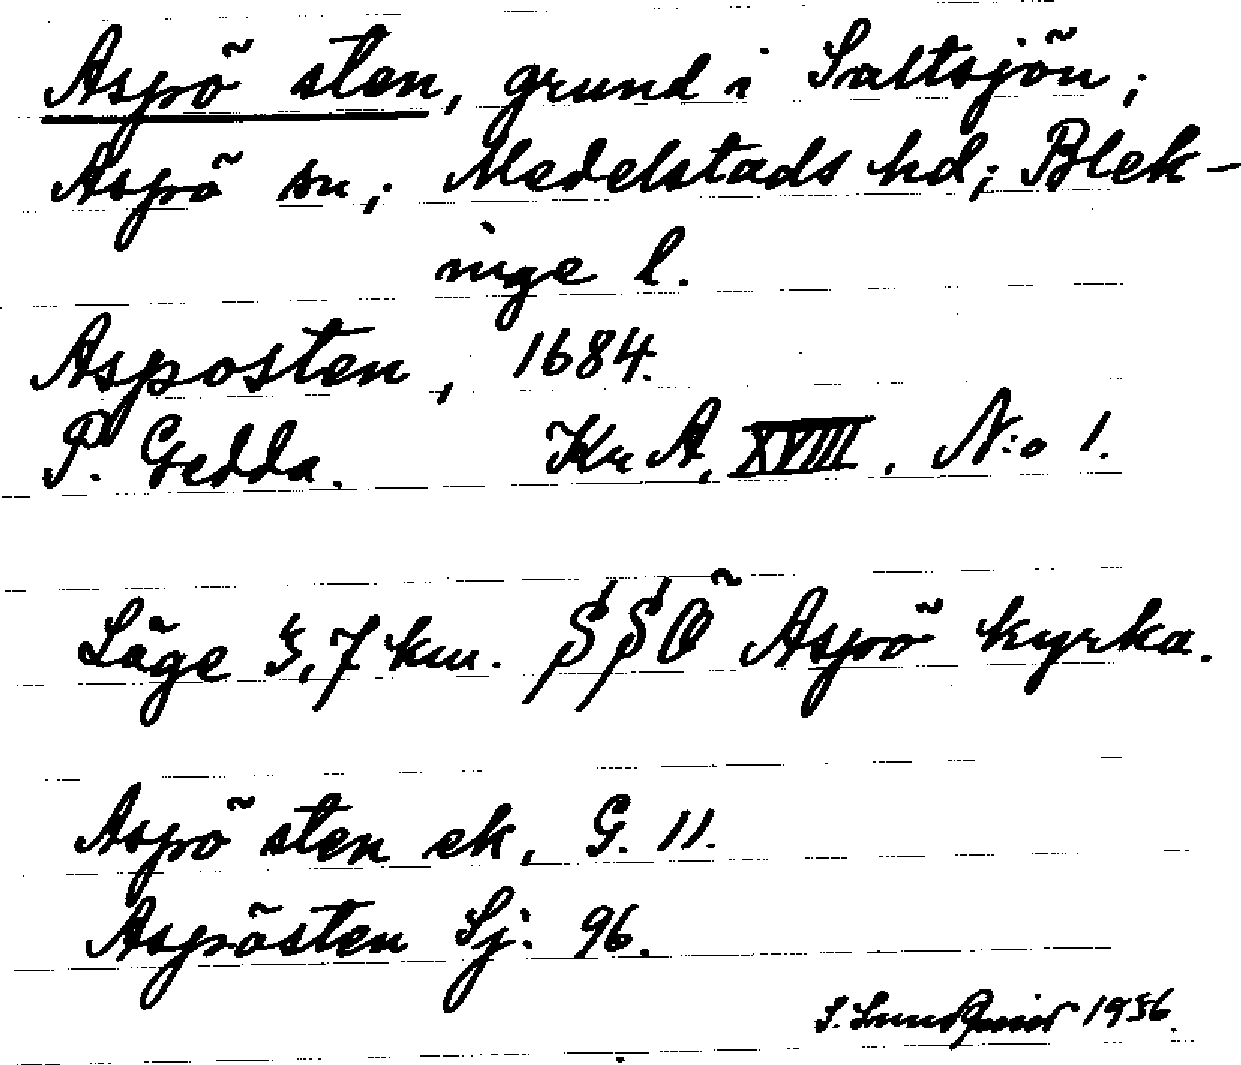 Aspö sten, grund i Saltsjön;
Aspö sn; Medelstads hd; Blek-
inge l.
Asposten, 1684.
P. Gedda. Kr A. XVIII. N:o 1.
Läge 3,7 km. SSÖ Aspö kyrka.
Aspö sten ek. G. 11.
Aspösten Sj. 96.
S. Lundquist 1956.